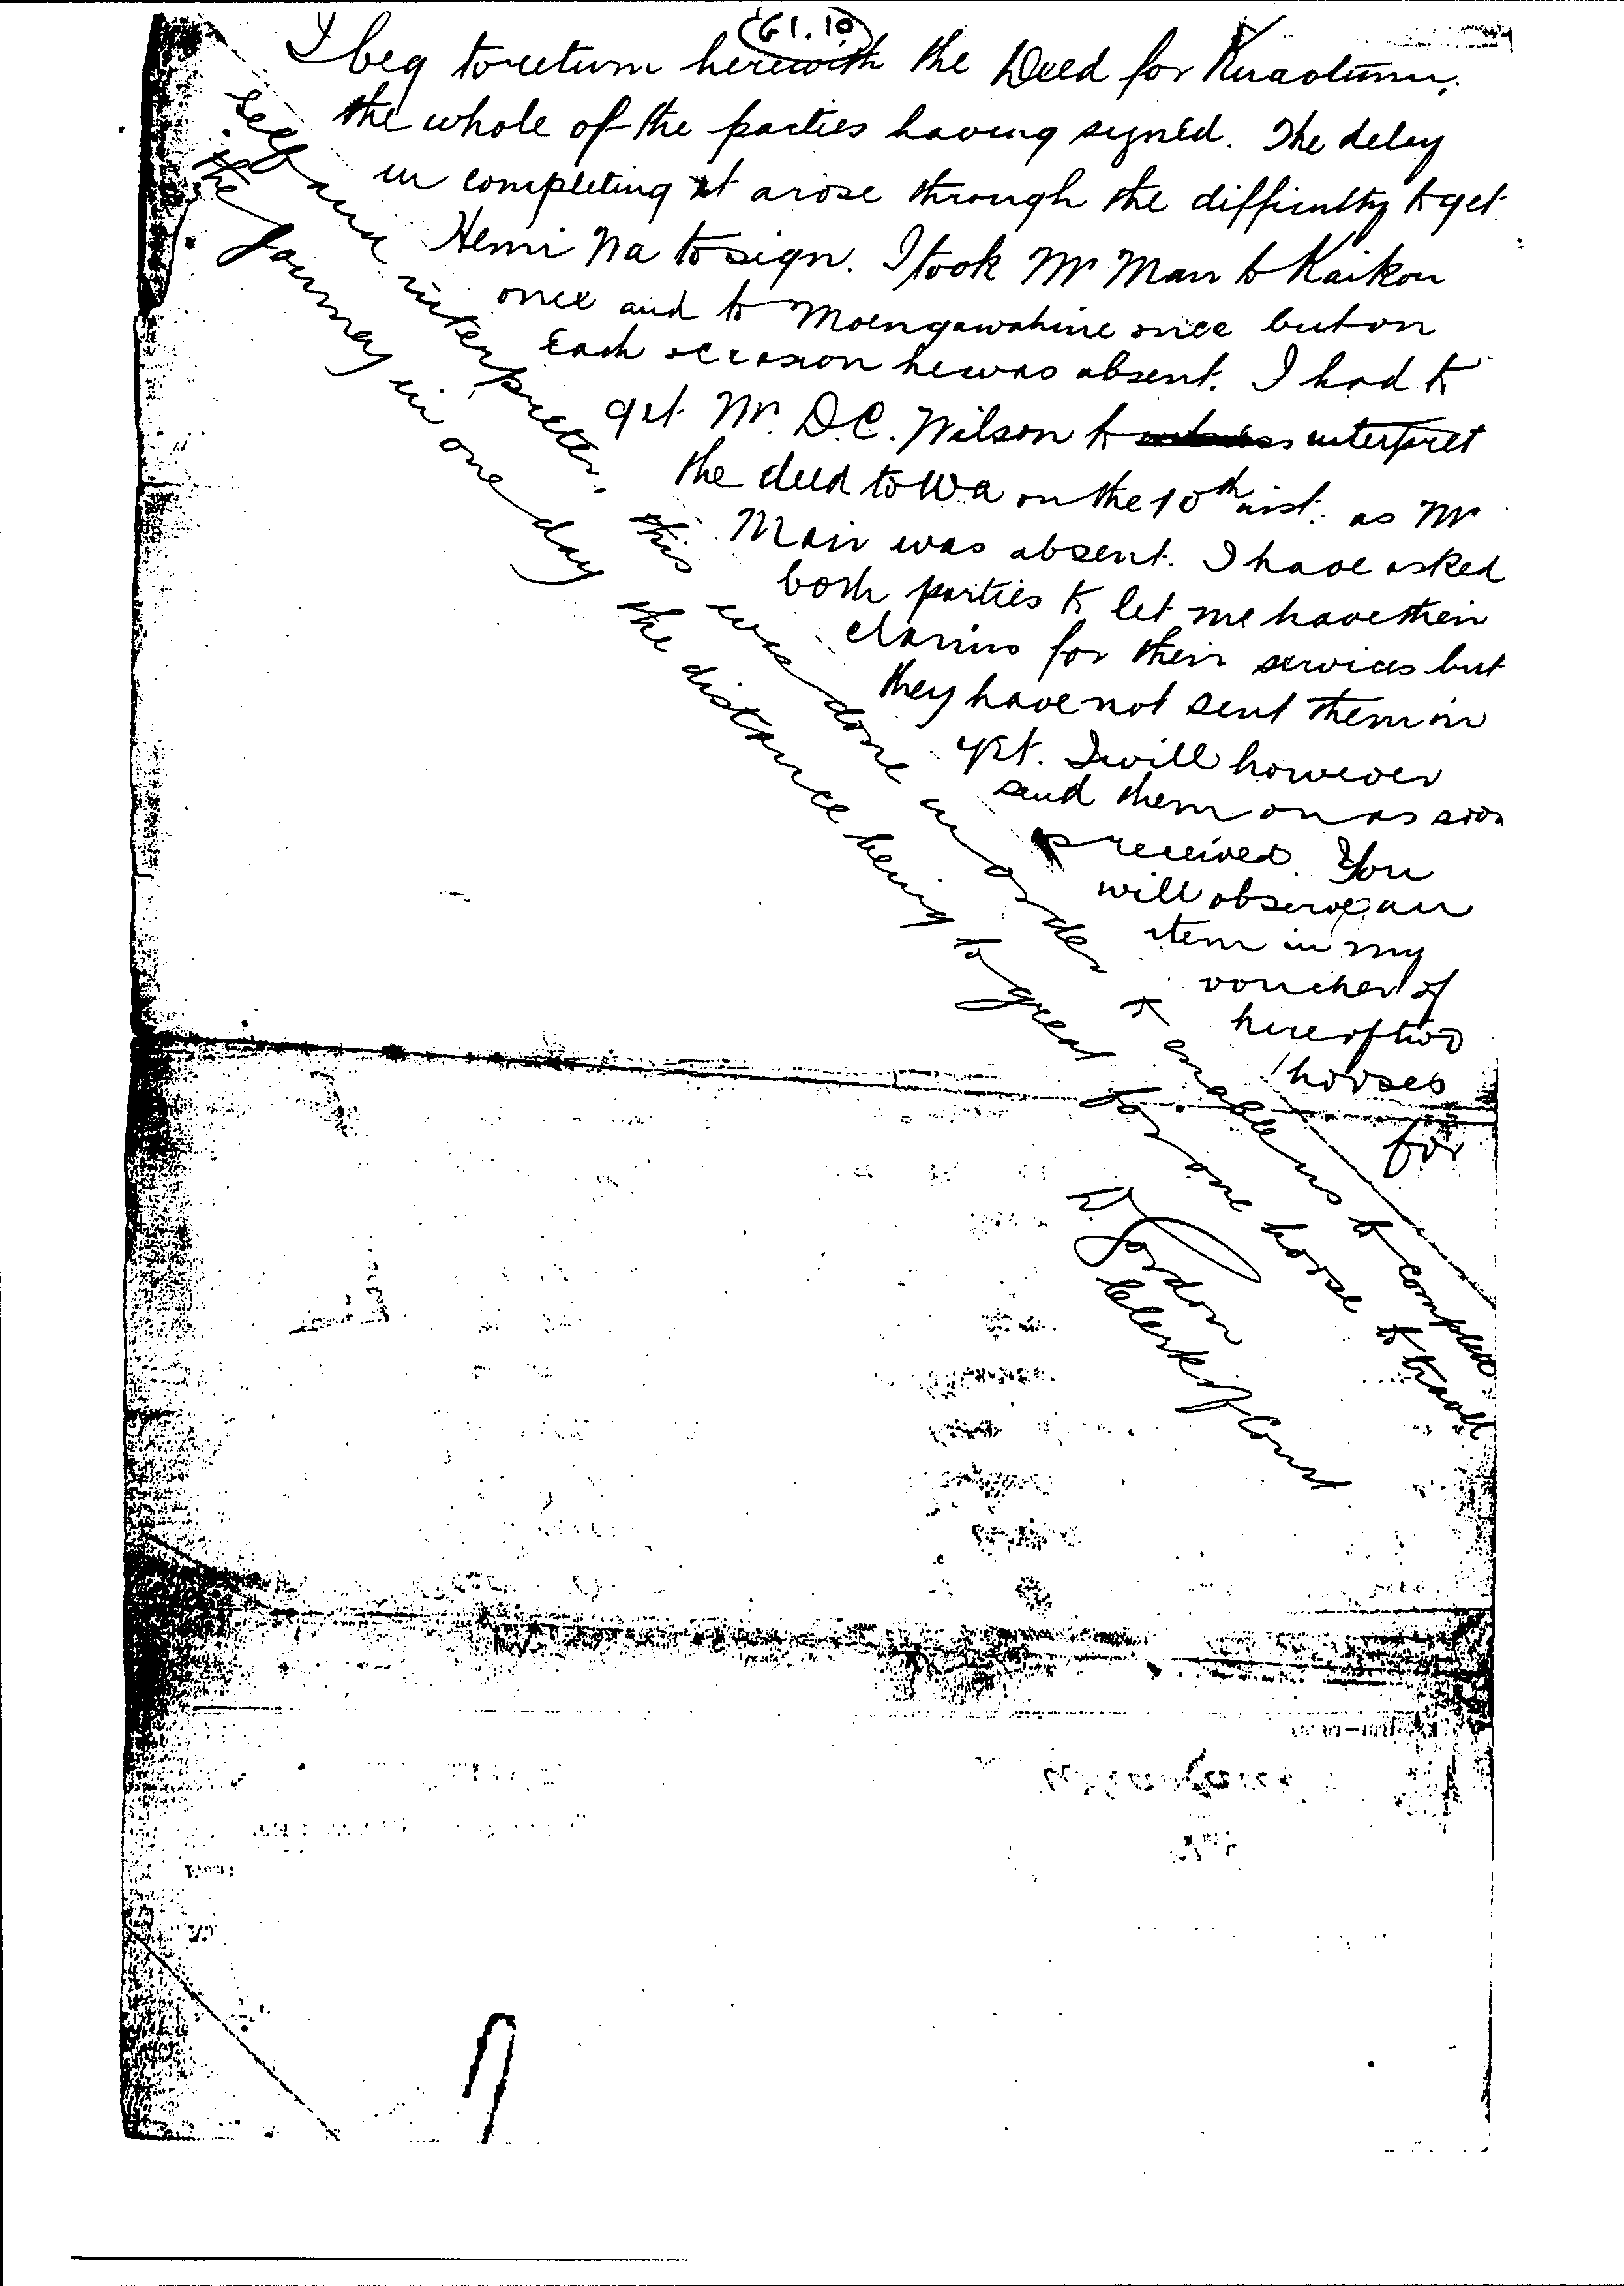 61.10
I beg to return herewith the Deed for Kuaotunu,
the whole of the parties having signed. The delay
in completing it arose through the difficulty to get
Hemi Wa to sign. I took Mr Mair to Kaikou
once and to Moengawahine once but on
Each occasion he was absent. I had to
get Mr. D.C. Wilson to interpret
the deed to Wa on the 10th inst. as Mr
Mair was absent. I have asked
both parties to let me have their
claims for their services but
they have not sent them in
yet. I will however
send them on as soon
received. You
will observe an
item in my
voucher of
hire of two
horses
for
self and interpreter, this was done in order to enable us to complete
the journey in one day the distance being to great for one horse to travel
D. Jordon
Clerk of Court